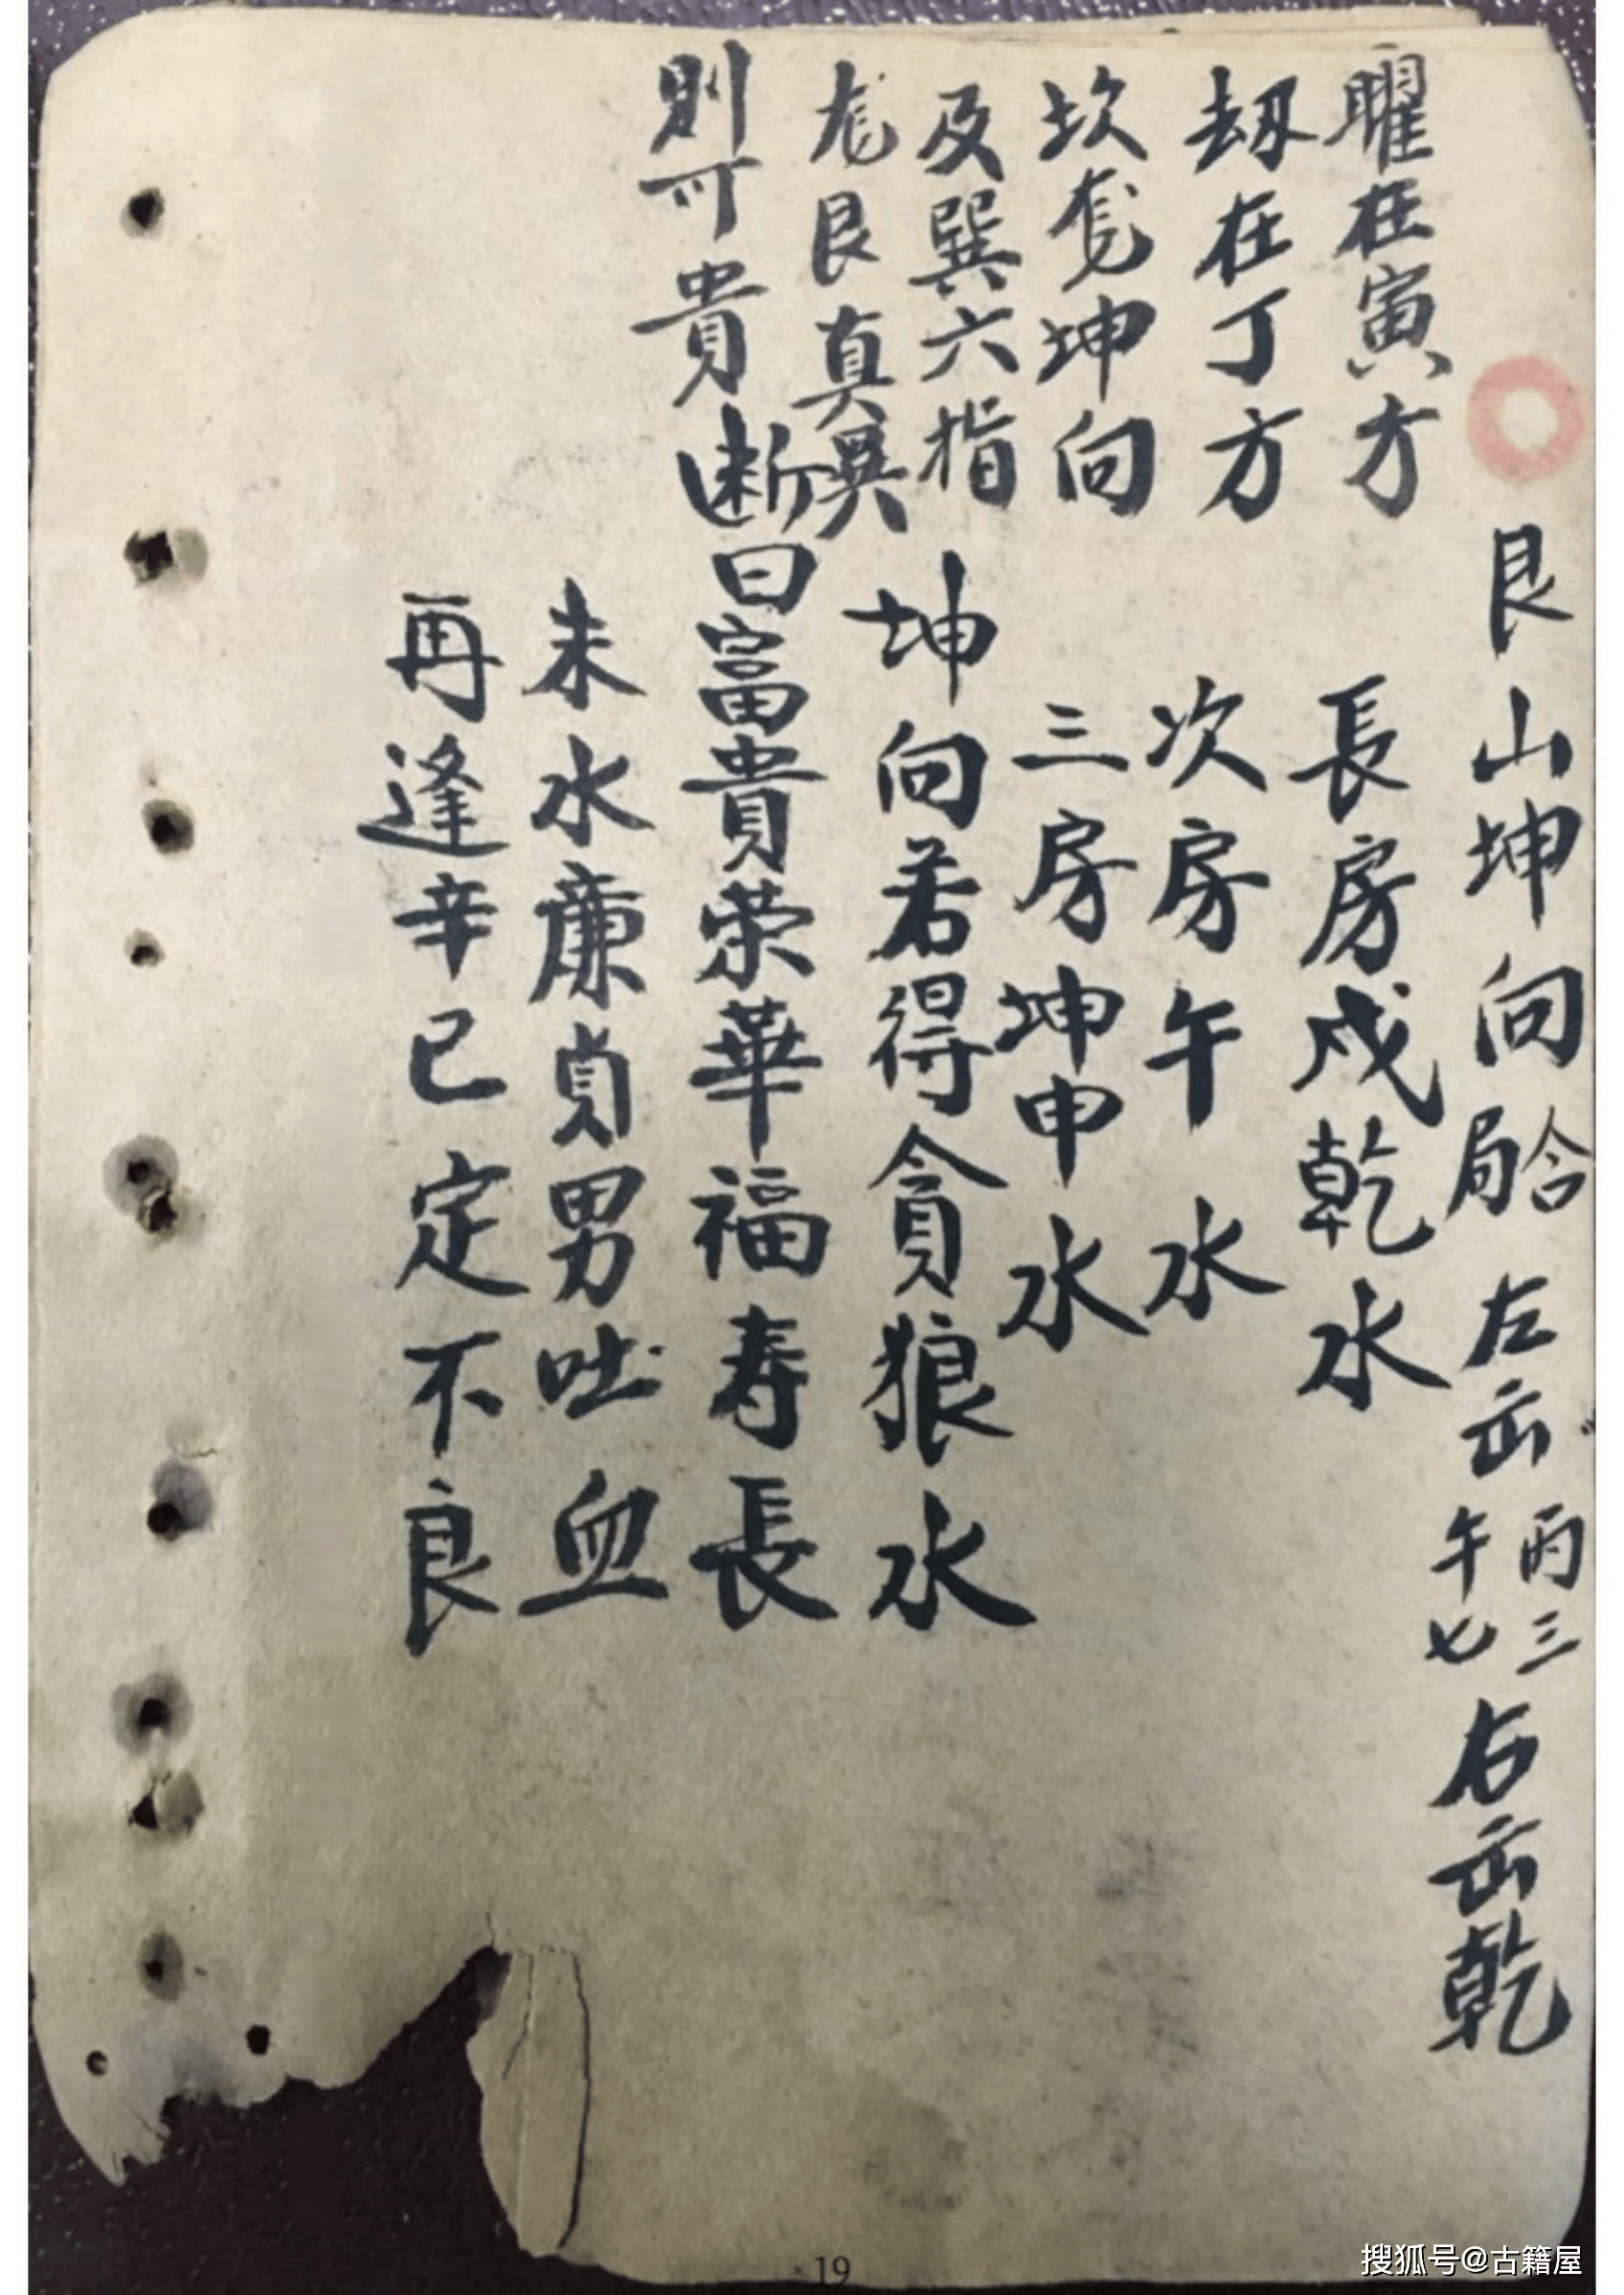 艮山坤向局合左㟁丙三午七右㟁乾
曜在寅方
長房戍乾水
劫在丁方
次房午水
坎癸坤向
三房坤申水
及巽六指
坤向若得貪狼水
艮真異
則可貴
断曰富貴荣華福寿長
未水廉貞男吐血
再逢辛巳定不良
19
搜狐号@古籍屋